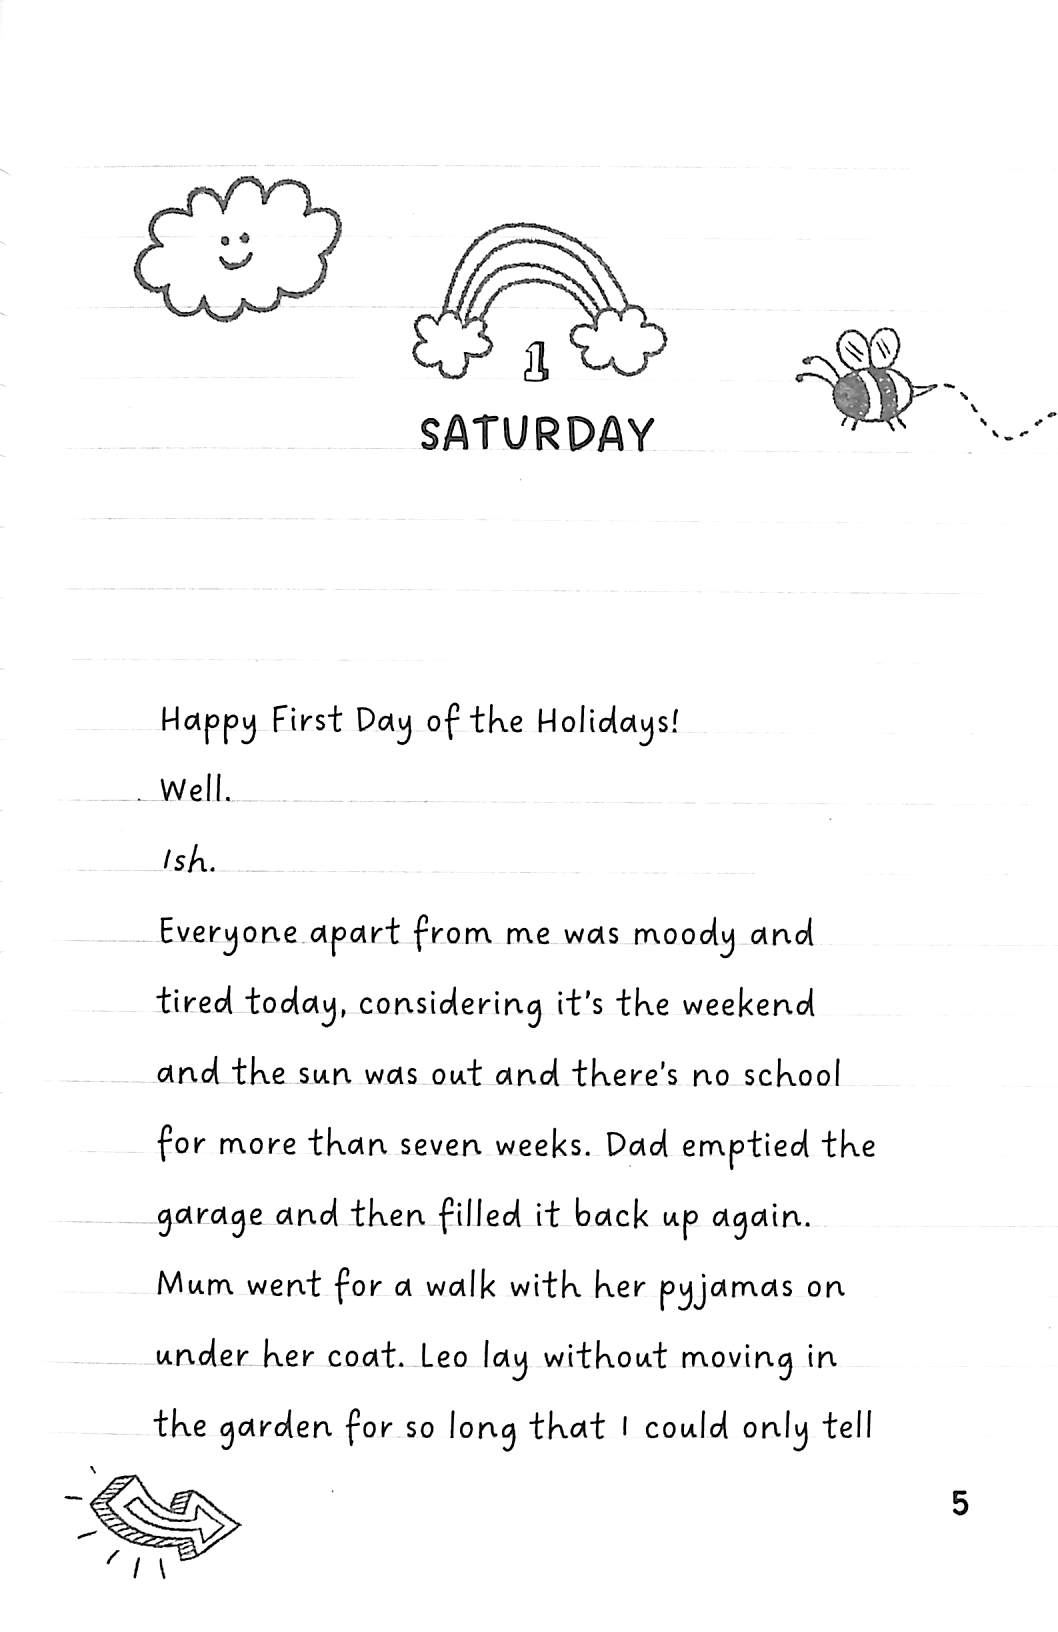 1
SATURDAY
Happy First Day of the Holidays!
Well.
Ish.
Everyone apart from me was moody and
tired today, considering it's the weekend
and the sun was out and there's no school
for more than seven weeks. Dad emptied the
garage and then filled it back up again.
Mum went for a walk with her pyjamas on
under her coat. Leo lay without moving in
the garden for so long that I could only tell
5